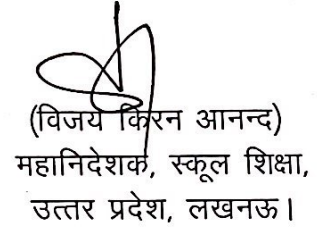 (विजय किरन आनन्द)
महानिदेशक, स्कूल शिक्षा,
उत्तर प्रदेश, लखनऊ।